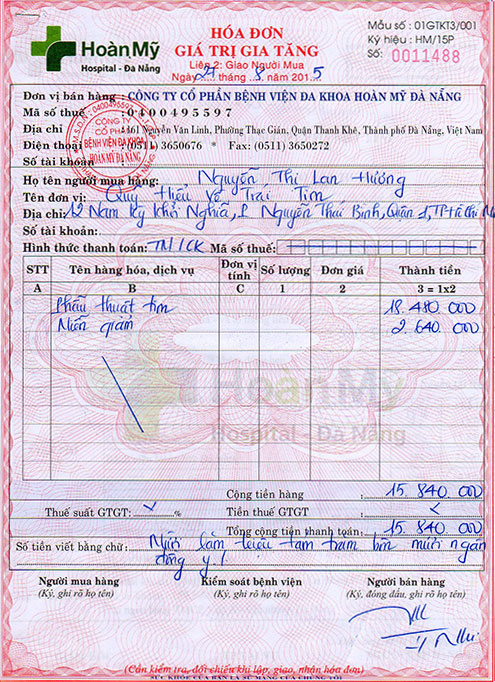 HoànMỹ
Hospital - Đà Nẵng
HÓA ĐƠN
GIÁ TRỊ GIA TĂNG
Liên 2: Giao Người Mua
Ngày 29 tháng 8 năm 2015
Mẫu số : 01GTKT3/001
Ký hiệu : HM/15P
Số: 0011488
Đơn vị bán hàng : CÔNG TY CỔ PHẦN BỆNH VIỆN ĐA KHOA HOÀN MỸ ĐÀ NẴNG
Mã số thuế : 0400495597
Địa chỉ : 161 Nguyễn Văn Linh, Phường Thạc Gián, Quận Thanh Khê, Thành phố Đà Nẵng, Việt Nam
Điện thoại : (0511) 3650676 * Fax: (0511) 3650272
Số tài khoản :
M.S.D.N: 0400495597
CÔNG TY
CỔ PHẦN
BỆNH VIỆN ĐA KHOA
HOÀN MỸ ĐÀ NẴNG
Họ tên người mua hàng: Nguyễn Thị Lan Hương
Tên đơn vị: Quỹ Hiểu Về Trái Tim
Địa chỉ: 12 Nam Kỳ Khởi Nghĩa, P. Nguyễn Thái Bình, Quận 1, TP Hồ Chí
Số tài khoản:
Hình thức thanh toán: TM/CK Mã số thuế:
STT Tên hàng hóa, dịch vụ Đơn vị tính Số lượng Đơn giá Thành tiền
A B C 1 2 3 = 1x2
Phẫu thuật tim 18.480.000
Miễn giảm 2.640.000
HoànMỹ
Hospital - Đà Nẵng
Cộng tiền hàng 15.840.000
Thuế suất GTGT: % Tiền thuế GTGT:
Tổng cộng tiền thanh toán: 15.840.000
Số tiền viết bằng chữ: Mười lăm triệu tám trăm bốn mươi ngàn
đồng y./.
Người mua hàng Kiểm soát bệnh viện Người bán hàng
(Ký, ghi rõ họ tên) (Ký, ghi rõ họ tên) (Ký, đóng dấu, ghi rõ họ tên)
(Cần kiểm tra, đối chiếu khi lập, giao, nhận hóa đơn)
SỨC KHỎE CỦA BẠN LÀ SỨ MẠNG CỦA CHÚNG TÔI